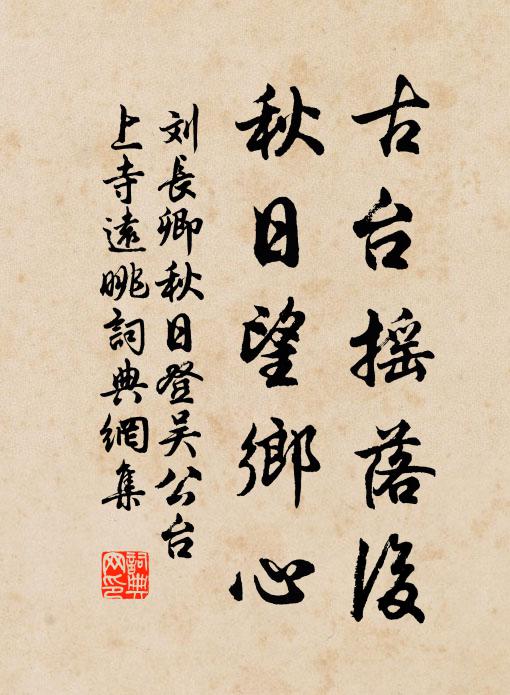 古台摇落後
秋日望鄉心
刘長卿秋日登吴公台
上寺遠眺詞典網集
詞典网印